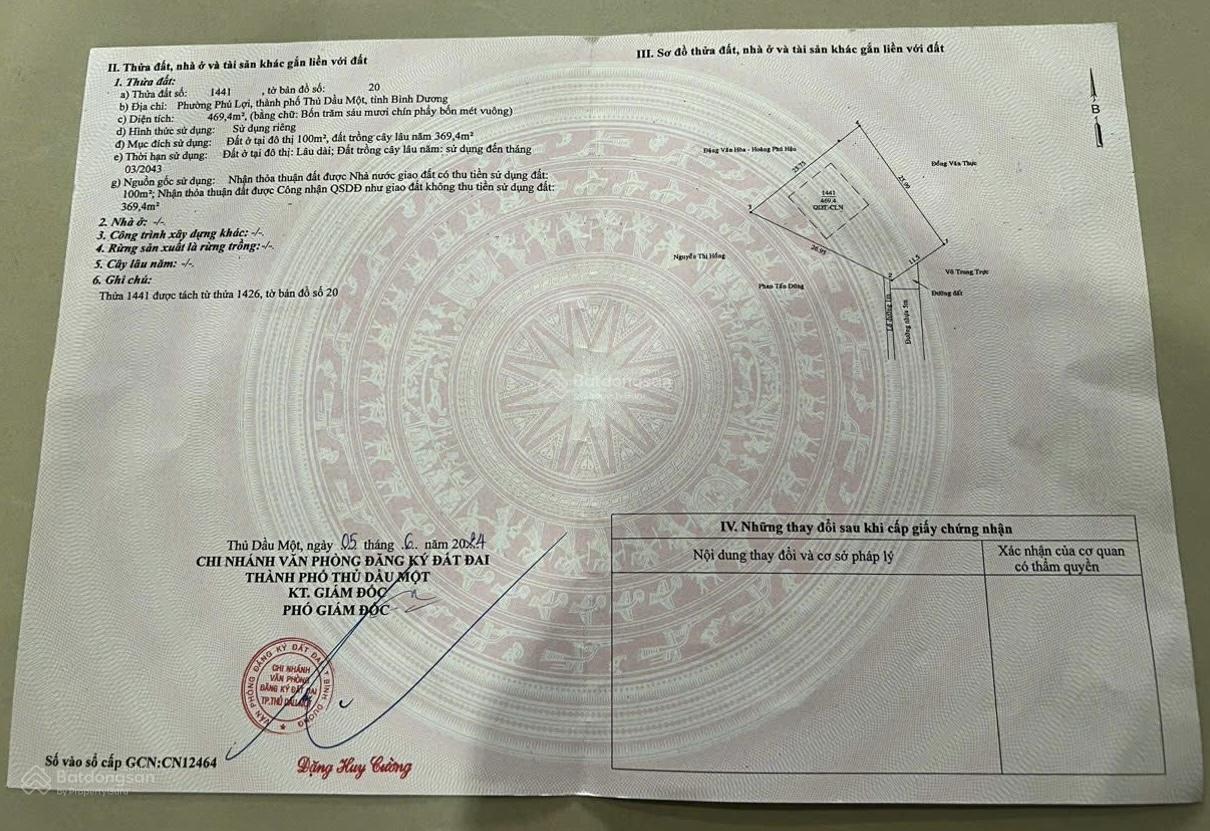 II. Thửa đất, nhà ở và tài sản khác gắn liền với đất
1. Thửa đất:
a) Thửa đất số: 1441 , tờ bản đồ số: 20
b) Địa chỉ: Phường Phú Lợi, thành phố Thủ Dầu Một, tỉnh Bình Dương
c) Diện tích: 469,4m², (bằng chữ: Bốn trăm sáu mươi chín phẩy bốn mét vuông)
d) Hình thức sử dụng: Sử dụng riêng
đ) Mục đích sử dụng: Đất ở tại đô thị 100m², đất trồng cây lâu năm 369,4m²
e) Thời hạn sử dụng: Đất ở tại đô thị: Lâu dài; Đất trồng cây lâu năm: sử dụng đến tháng
03/2043
g) Nguồn gốc sử dụng: Nhận thỏa thuận đất được Nhà nước giao đất có thu tiền sử dụng đất:
100m²; Nhận thỏa thuận đất được Công nhận QSDĐ như giao đất không thu tiền sử dụng đất:
369,4m²
2. Nhà ở: -/-
3. Công trình xây dựng khác: -/-
4. Rừng sản xuất là rừng trồng:-/-
5. Cây lâu năm: -/-
6. Ghi chú:
Thửa 1441 được tách từ thửa 1426, tờ bản đồ số 20
Thủ Dầu Một, ngày 05 tháng 6 năm 2024
CHI NHÁNH VĂN PHÒNG ĐĂNG KÝ ĐẤT ĐAI
THÀNH PHỐ THỦ DẦU MỘT
KT. GIÁM ĐỐC
PHÓ GIÁM ĐỐC
VĂN PHÒNG ĐĂNG KÝ ĐẤT ĐAI BÌNH DƯƠNG
CHI NHÁNH
VĂN PHÒNG
ĐĂNG KÝ ĐẤT ĐAI
TP.THỦ DẦU MỘT
Đặng Huy Cường
Số vào sổ cấp GCN:CN12464
III. Sơ đồ thửa đất, nhà ở và tài sản khác gắn liền với đất
B
Đặng Văn Hòa - Hoàng Phú Hậu
Đồng Văn Thực
23.75
25.00
1441
469.4
ODT+CLN
3
26.95
Nguyễn Thị Hồng
11.5
2
Võ Trung Trực
Phan Tấn Dũng
Đường đất
Lề đường 1m
Đường nhựa 5m
IV. Những thay đổi sau khi cấp giấy chứng nhận
Nội dung thay đổi và cơ sở pháp lý
Xác nhận của cơ quan
có thẩm quyền
Batdongsan
by PropertyGuru
Batdongsan
by PropertyGuru